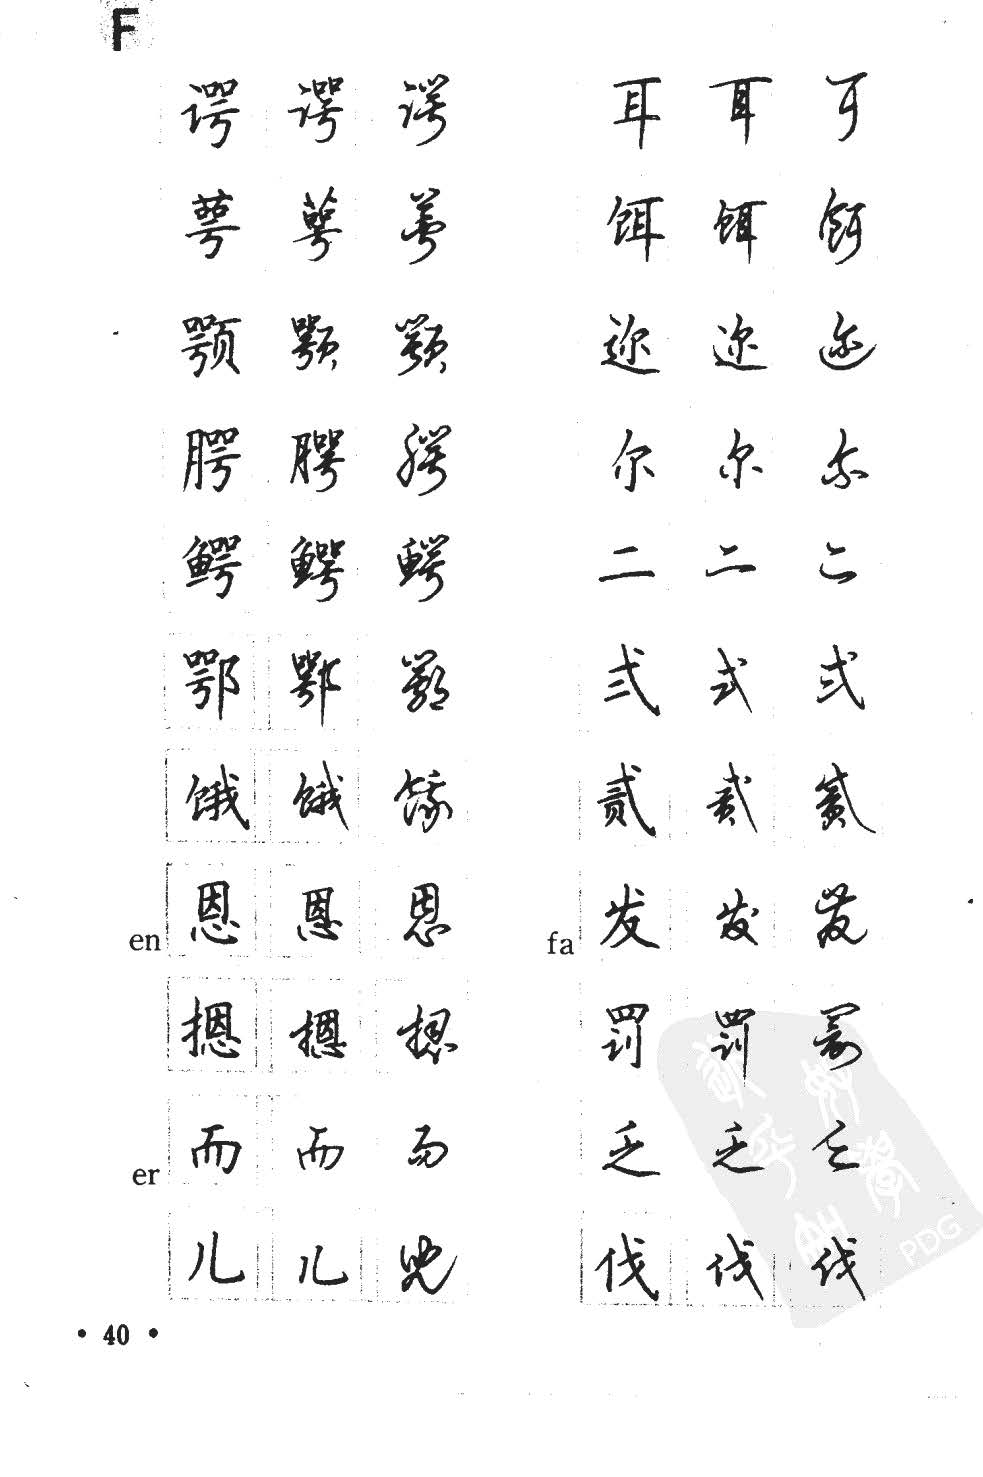 F
谔 谔 谔
萼 萼 萼
颚 颚 颚
腭 腭 腭
鳄 鳄 鳄
鄂 鄂 鄂
饿 饿 饿
en 恩 恩 恩
摁 摁 摁
er 而 而 而
儿 儿 兒
耳 耳 耳
饵 饵 饵
迩 迩 迩
尔 尔 尔
二 二 二
弍 弍 弍
贰 贰 贰
fa 发 发 发
罚 罚 罚
乏 乏 乏
伐 伐 伐
• 40 •
PDG